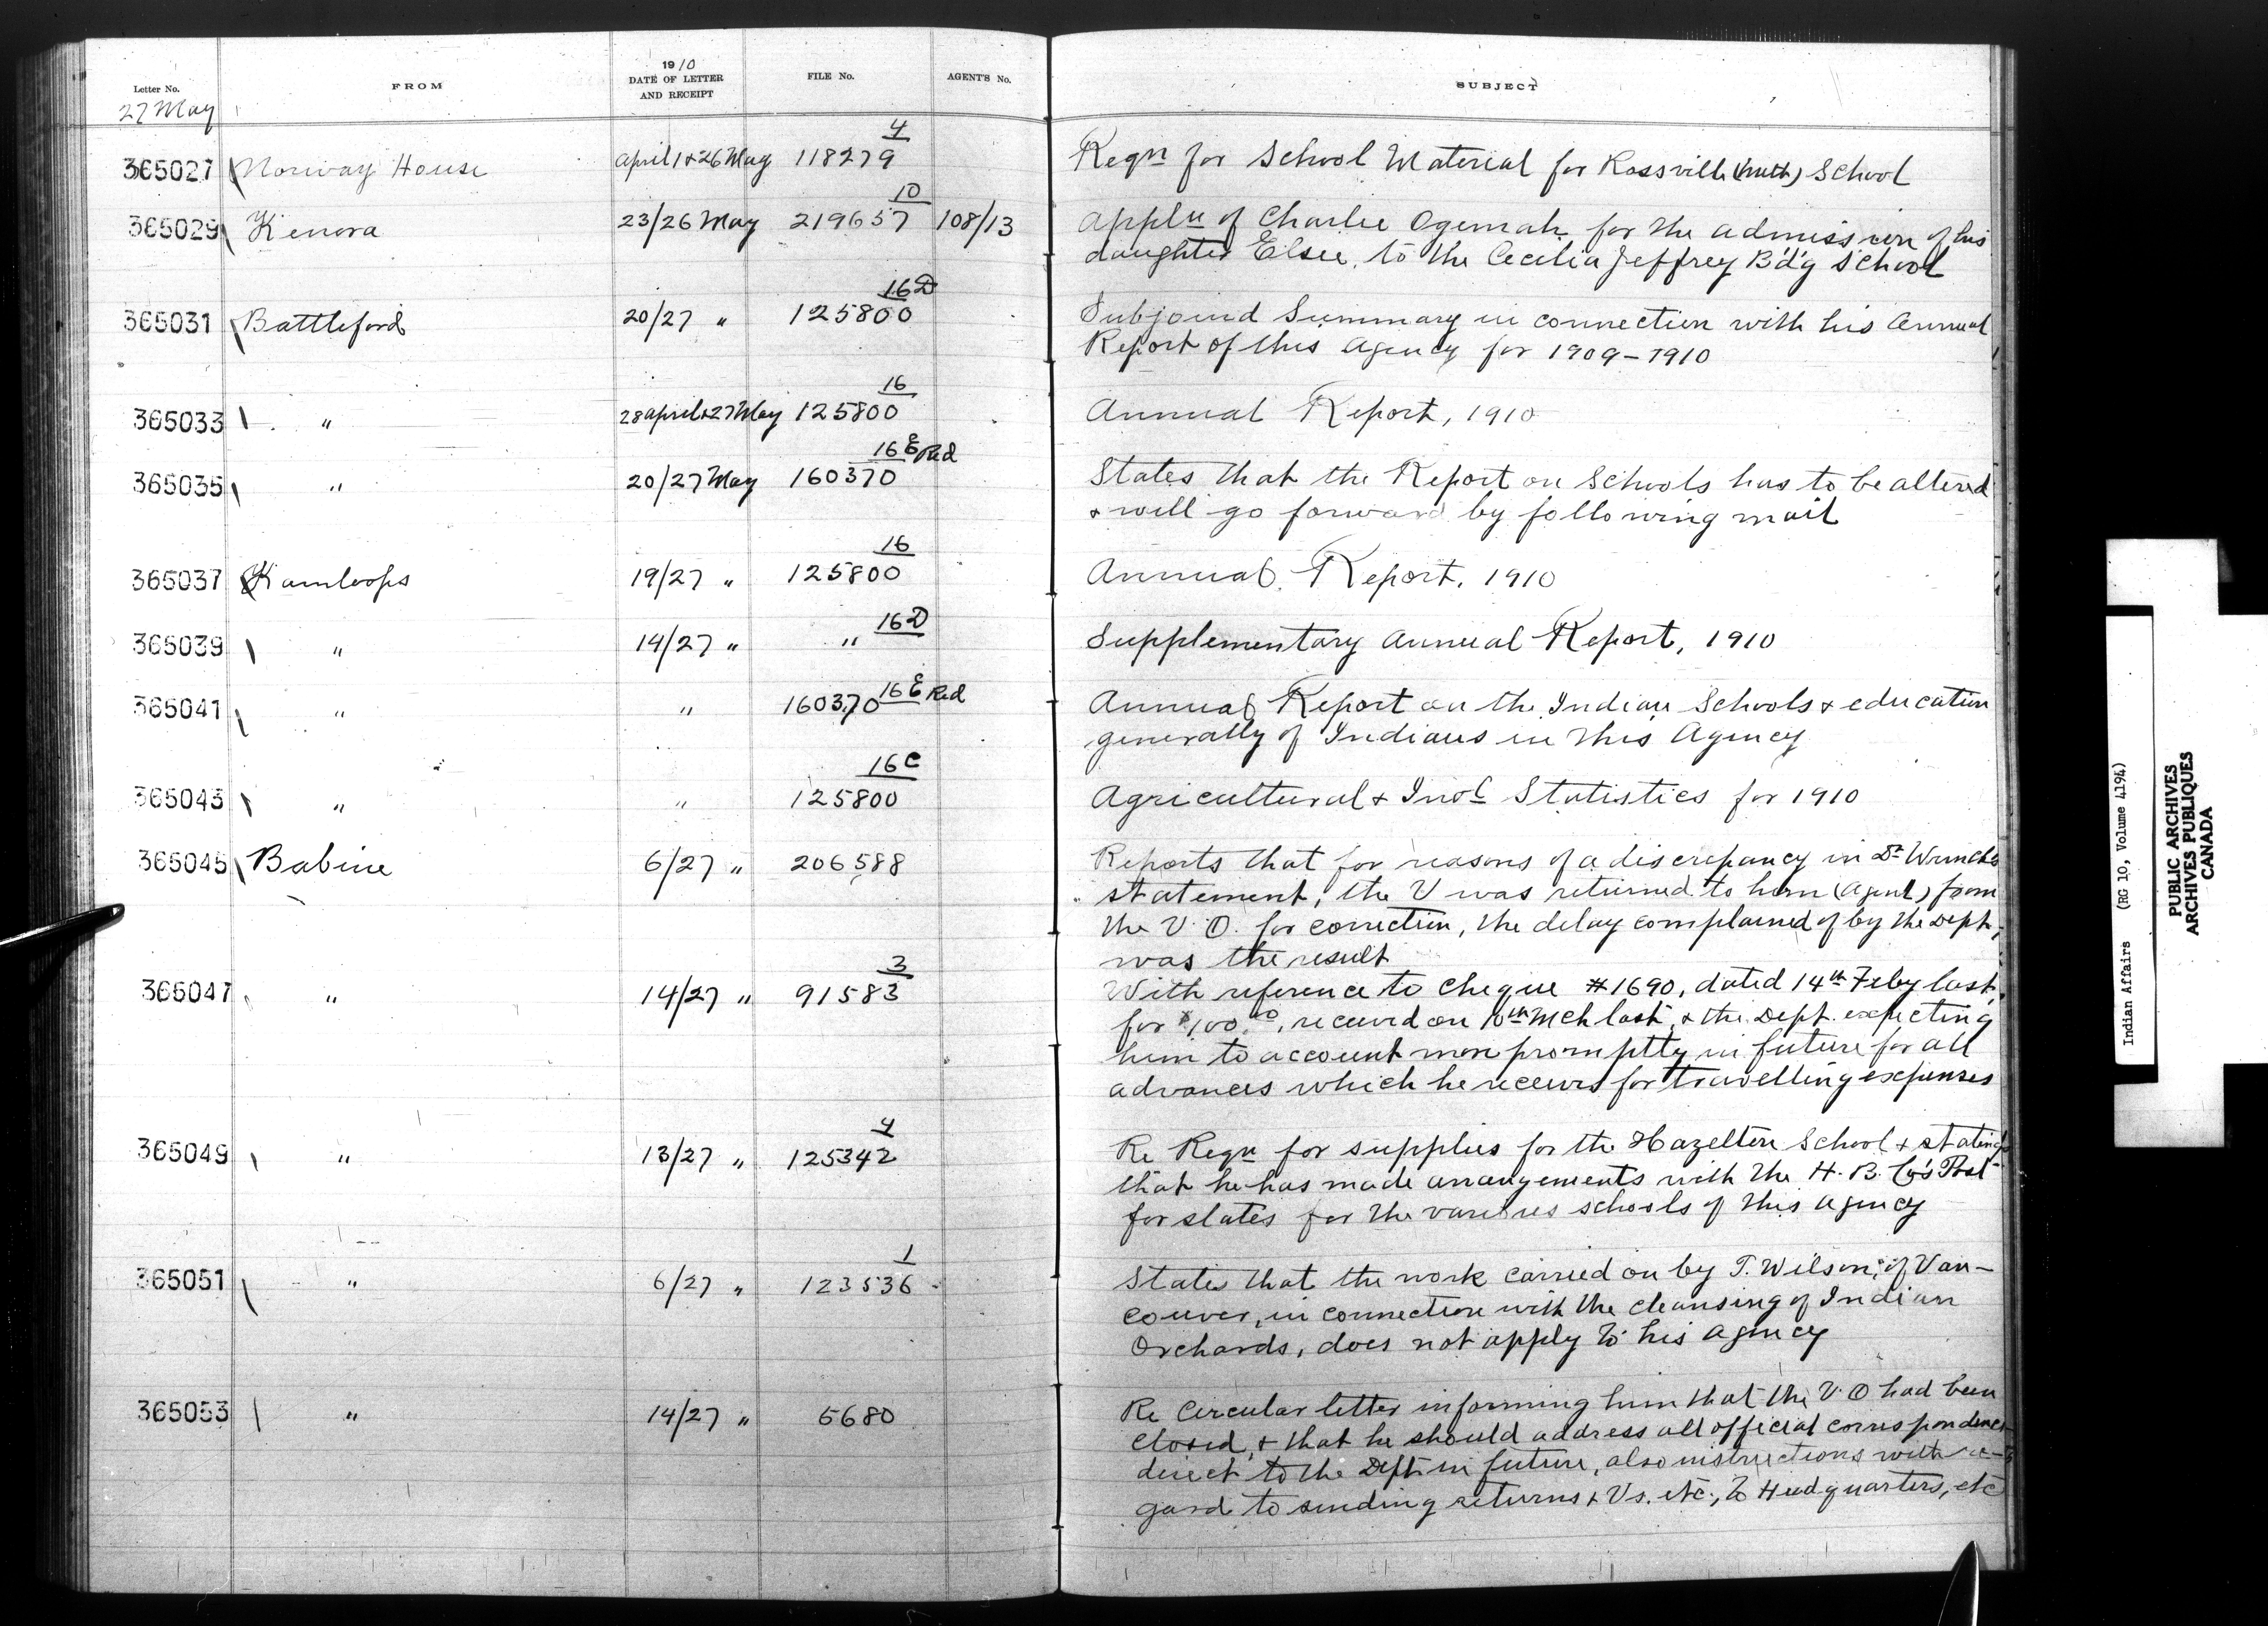 Letter No.
FROM
1910
DATE OF LETTER
AND RECEIPT
FILE No.
AGENT'S No.
SUBJECT
27 May
365027 Norway House April 1 & 26 May 118279 4 Reqn for School Material for Rossville (Meth) School
365029 Kenora 23/26 May 219657 10 108/13 Appln of Charlie Ogemah for the admission of his
daughter Elsie, to the Cecilia Jeffrey B'd'g School
365031 Battleford 20/27 " 125800 16D Subjoined Summary in connection with his Annual
Report of this Agency for 1909-1910
365033 " 28 April & 27 May 125800 16 Annual Report, 1910
365035 " 20/27 May 160370 16E Red States that the Report on Schools has to be altered
& will go forward by following mail
365037 Kamloops 19/27 " 125800 16 Annual Report, 1910
365039 " 14/27 " " 16D Supplementary Annual Report, 1910
365041 " " 160370 16E Red Annual Report on the Indian Schools & education
generally of Indians in this Agency
365043 " " 125800 16C Agricultural & Indl Statistics for 1910
365045 Babine 6/27 " 206588 Reports that for reasons of a discrepancy in Dr Wrinch's
statement, the V was returned to him (Agent) from
the V.O. for correction, the delay complained of by the Dept,
was the result
365047 " 14/27 " 91583 3 With reference to Cheque #1690, dated 14th Feby last,
for $100.00, received on 10th Mch last, & the Dept. expecting
him to account more promptly in future for all
advances which he receives for travelling expenses
365049 " 13/27 " 125342 4 Re Reqn for supplies for the Hazelton School & stating
that he has made arrangements with the H. B. Co's Post
for slates for the various schools of this Agency
365051 " 6/27 " 123536 1 States that the work carried on by T. Wilson, of Van-
couver, in connection with the cleansing of Indian
Orchards, does not apply to his Agency
365053 " 14/27 " 5680 Re Circular letter informing him that the V.O had been
closed, & that he should address all official correspondence
direct to the Dept in future, also instructions with re-
gard to sending returns & Vs. etc., to Headquarters, etc
Indian Affairs (RG 10, Volume 4194)
PUBLIC ARCHIVES
ARCHIVES PUBLIQUES
CANADA